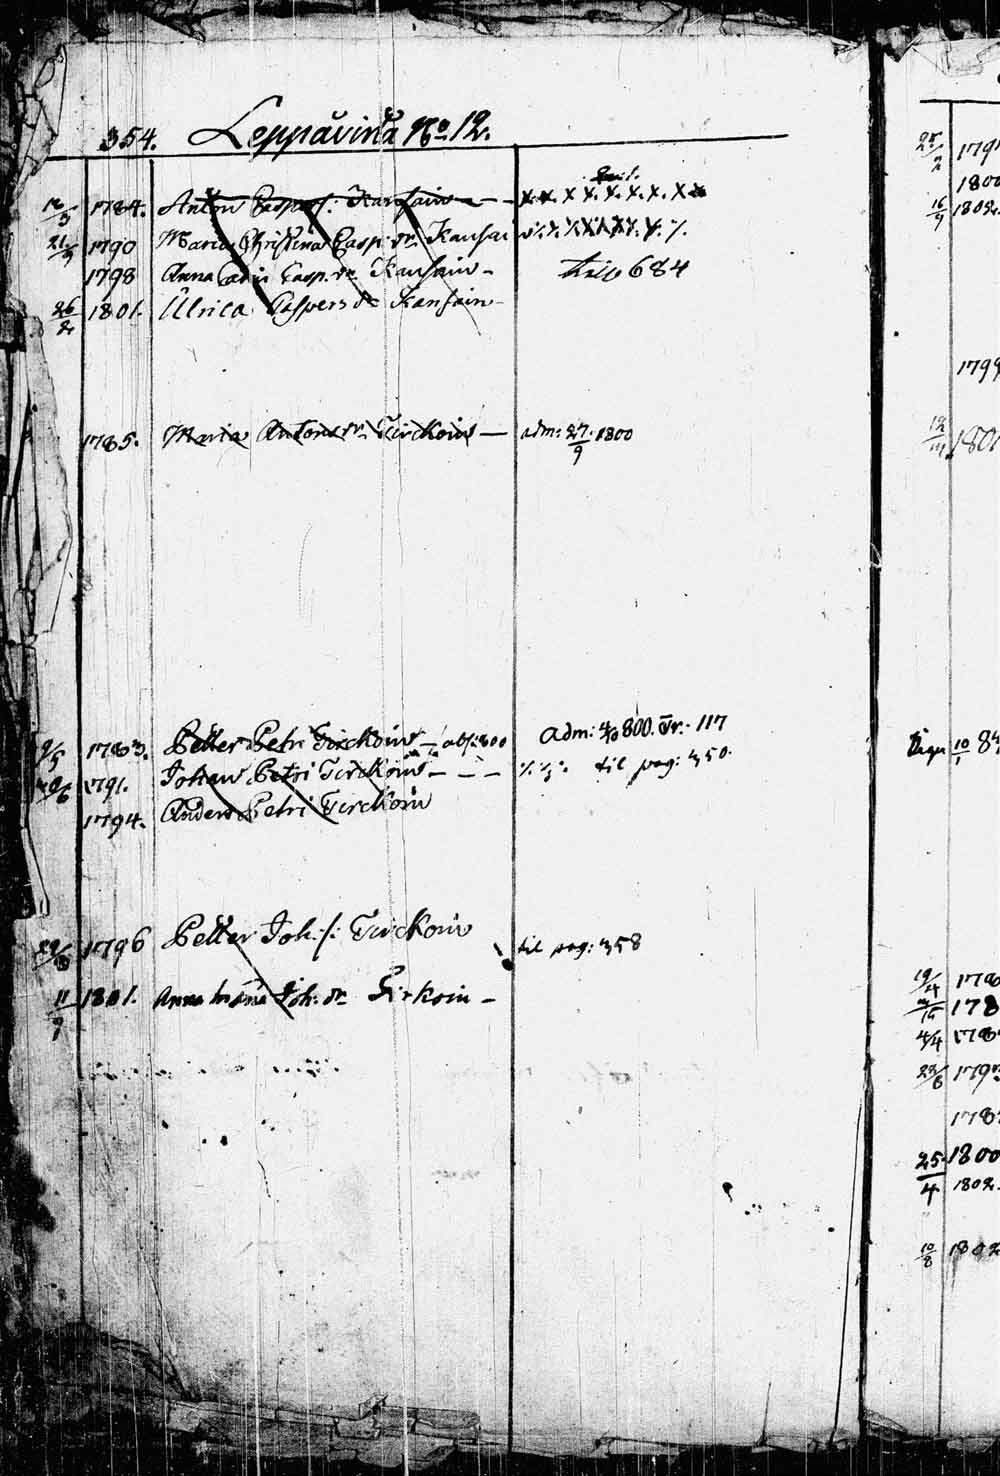 354. Leppävirta No 12.
12/3 1784. Anton Casp. s: Kansain
21/9 1790 Maria Christina Casp: dr. Kansai
1798 Anna Casp. dr Kansain - 684
26/2 1801. Ulrica Caspers dr Kansain -
1785. Maria Antons dr. Tirckoin — adm: 27/9 1800
9/5 1783. Petter Petri Tirckoin — abs: 800 Adm: 4/9 800. Tr. 117
1791. Johan Petri Tirckoin - - - til pag: 350.
1794. Anders Petri Tirckoin
1796 Petter Joh: s: Tirckoin til pag: 358
11/9 1801. Anna Joh. dr Tirkoin -
25/2 179
1800
16/9 1802.
1799
1801
10/1 84
19/4 178
178
4/4 178
23/6 179
178
25/4 1800
1802.
10/8 1802